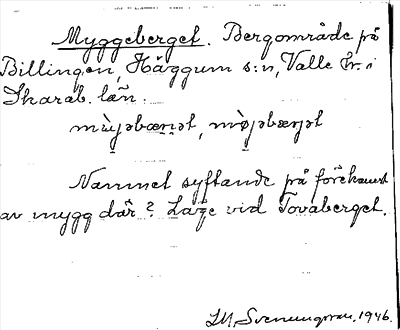 Myggeberget. Bergområde på
Billingen, Häggum s:n, Valle hr. i
Skarab. län.
mùjəbærjət, mø̀jəbærjət
Namnet syftande på förekomst
av mygg där? Läge vid Tovaberget.
Svenungsson. 1946.